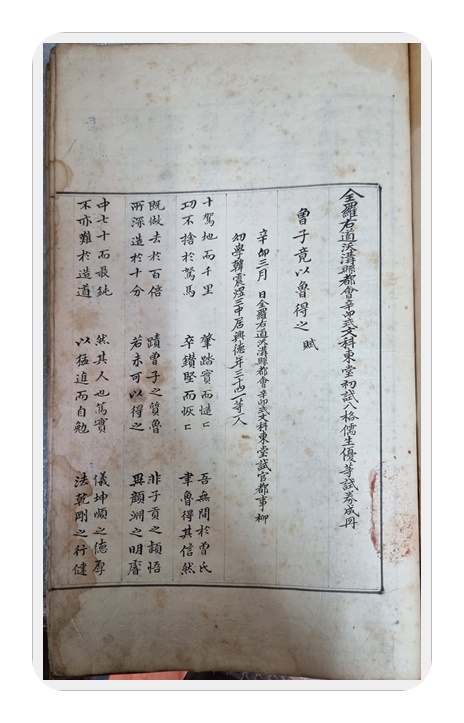 全羅右道沃溝縣都會辛卯式文科東堂初試入格儒生優等試券成冊
曾子竟以魯得之 賦
辛卯三月 日全羅右道沃溝縣都會辛卯式文科東堂試官都事柳
幼學韓震煜三中居興德年三十四一等人
十駕地而千里 肇踏實而慥匕 吾無間於曾氏
功不捨於駑馬 卒鑽堅而恢匕 聿魯得其信然
既倣去於百倍 蹟曾子之質魯 非子貢之穎悟
所深造於十分 若未可以得之 異顔淵之明睿
中七十而最鈍 然其人也篤實 儀坤順之德厚
不亦難於造道 以猛進而自勉 法乾剛之行健